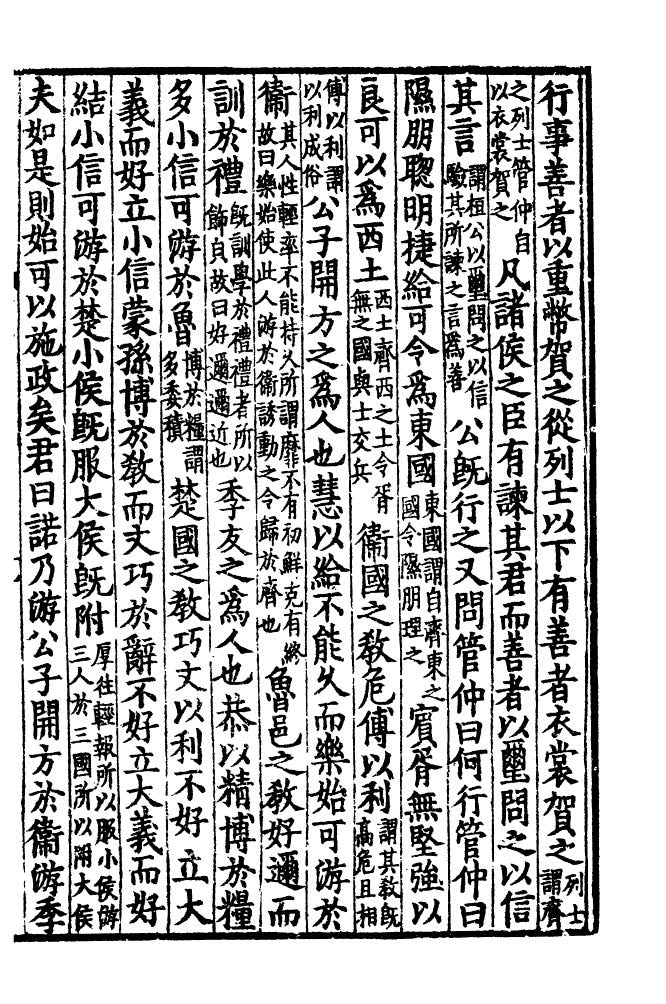 行事善者以重幣賀之從列士以下有善者衣裳賀之列士謂齊
之列士管仲自以衣裳賀之凡諸侯之臣有諫其君而善者以璽問之以信
其言謂桓公以璽問之以信驗其所諫之言為善公旣行之又問管仲曰何行管仲曰
隰朋聰明捷給可令爲東國東國謂自齊東之國令隰朋理之賓胥無堅強以
良可以爲西土西土齊西之土令胥無之國與士交兵衞國之敎危傅以利謂其敎旣高危且相
傅以利謂以利成俗公子開方之爲人也慧以給不能久而樂始可游於
衞其人性輕率不能持久所謂靡不有初鮮克有終故曰樂始使此人游於衞誘動之令歸於齊也魯邑之敎好邇而
訓於禮旣訓學於禮禮者所以飾自故曰好邇邇近也季友之爲人也恭以精博於糧
多小信可游於魯博於糧謂多委積楚國之敎巧文以利不好立大
義而好立小信蒙孫博於敎而文巧於辭不好立大義而好
結小信可游於楚小侯旣服大侯旣附厚往輕報所以服小侯游三人於三國所以附大侯
夫如是則始可以施政矣君曰諾乃游公子開方於衞游季